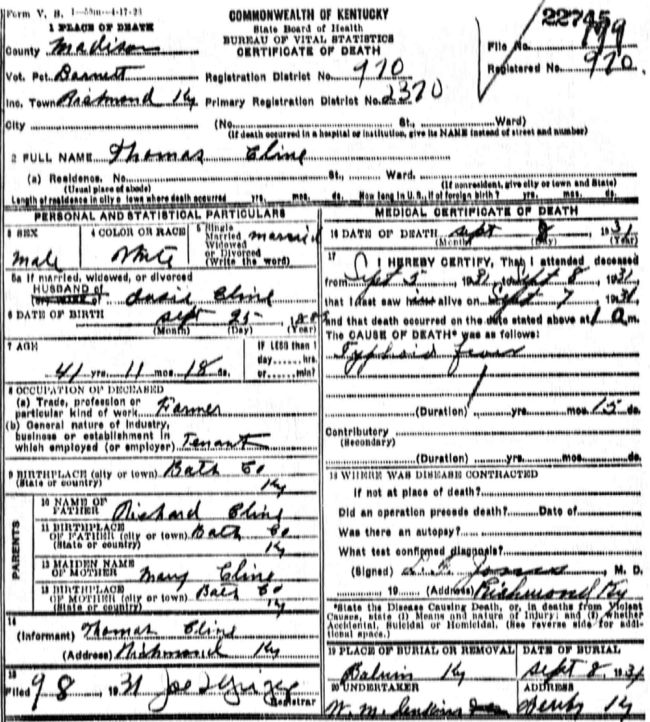 Form V. S. 1
COMMONWEALTH OF KENTUCKY
State Board of Health
BUREAU OF VITAL STATISTICS
CERTIFICATE OF DEATH
22745
1 PLACE OF DEATH
County Madison
File No. 199
Vot. Pct. Barnett Registration District No. 970
Registered No. 970
Inc. Town Richmond Ky Primary Registration District No. 2370
City (No. St., Ward)
(If death occurred in a hospital or institution, give its NAME instead of street and number)
2 FULL NAME Thomas Cline
(a) Residence. No. St., Ward.
(Usual place of abode) (If nonresident, give city or town and State)
Length of residence in city or town where death occurred yrs. mos. ds. How long in U. S., if of foreign birth? yrs. mos. ds.
PERSONAL AND STATISTICAL PARTICULARS
3 SEX
male
4 COLOR OR RACE
White
5 Single
Married
Widowed
or Divorced
(Write the word)
married
5a If married, widowed, or divorced
HUSBAND of
(or) WIFE of Cline
6 DATE OF BIRTH Sept 25
(Month) (Day) (Year)
7 AGE
41 yrs. 11 mos. 18 ds.
IF LESS than 1
day hrs.
or min?
8 OCCUPATION OF DECEASED
(a) Trade, profession or
particular kind of work Farmer
(b) General nature of industry,
business or establishment in
which employed (or employer) Tenant
9 BIRTHPLACE (city or town) Bath Co
(State or country) Ky
PARENTS
10 NAME OF
FATHER Richard Cline
11 BIRTHPLACE
OF FATHER (city or town) Bath Co
(State or country) Ky
12 MAIDEN NAME
OF MOTHER Mary Cline
13 BIRTHPLACE
OF MOTHER (city or town) Bath Co
(State or country) Ky
14
(Informant) Thomas Cline
(Address) Richmond Ky
15
Filed 9 8 1931 Joe
Registrar
MEDICAL CERTIFICATE OF DEATH
16 DATE OF DEATH Sept 8 1931
(Month) (Day) (Year)
17 I HEREBY CERTIFY, That I attended deceased
from Sept 5 1931 to Sept 8 1931
that I last saw him alive on Sept 7 1931
and that death occurred on the date stated above at 1 a.m.
The CAUSE OF DEATH* was as follows:
Typhoid Fever
(Duration) yrs. mos. 15 ds.
Contributory
(Secondary)
(Duration) yrs. mos. ds.
18 WHERE WAS DISEASE CONTRACTED
If not at place of death?
Did an operation precede death? Date of
Was there an autopsy?
What test confirmed diagnosis?
(Signed) M. D.
19 (Address) Richmond Ky
*State the Disease Causing Death, or, in deaths from Violent
Causes, state (1) Means and nature of Injury; and (2), whether
Accidental, Suicidal or Homicidal. (See reverse side for addi-
tional space.)
19 PLACE OF BURIAL OR REMOVAL
Ky
DATE OF BURIAL
Sept 8 1931
20 UNDERTAKER
W. M. Jenkins
ADDRESS
Ky